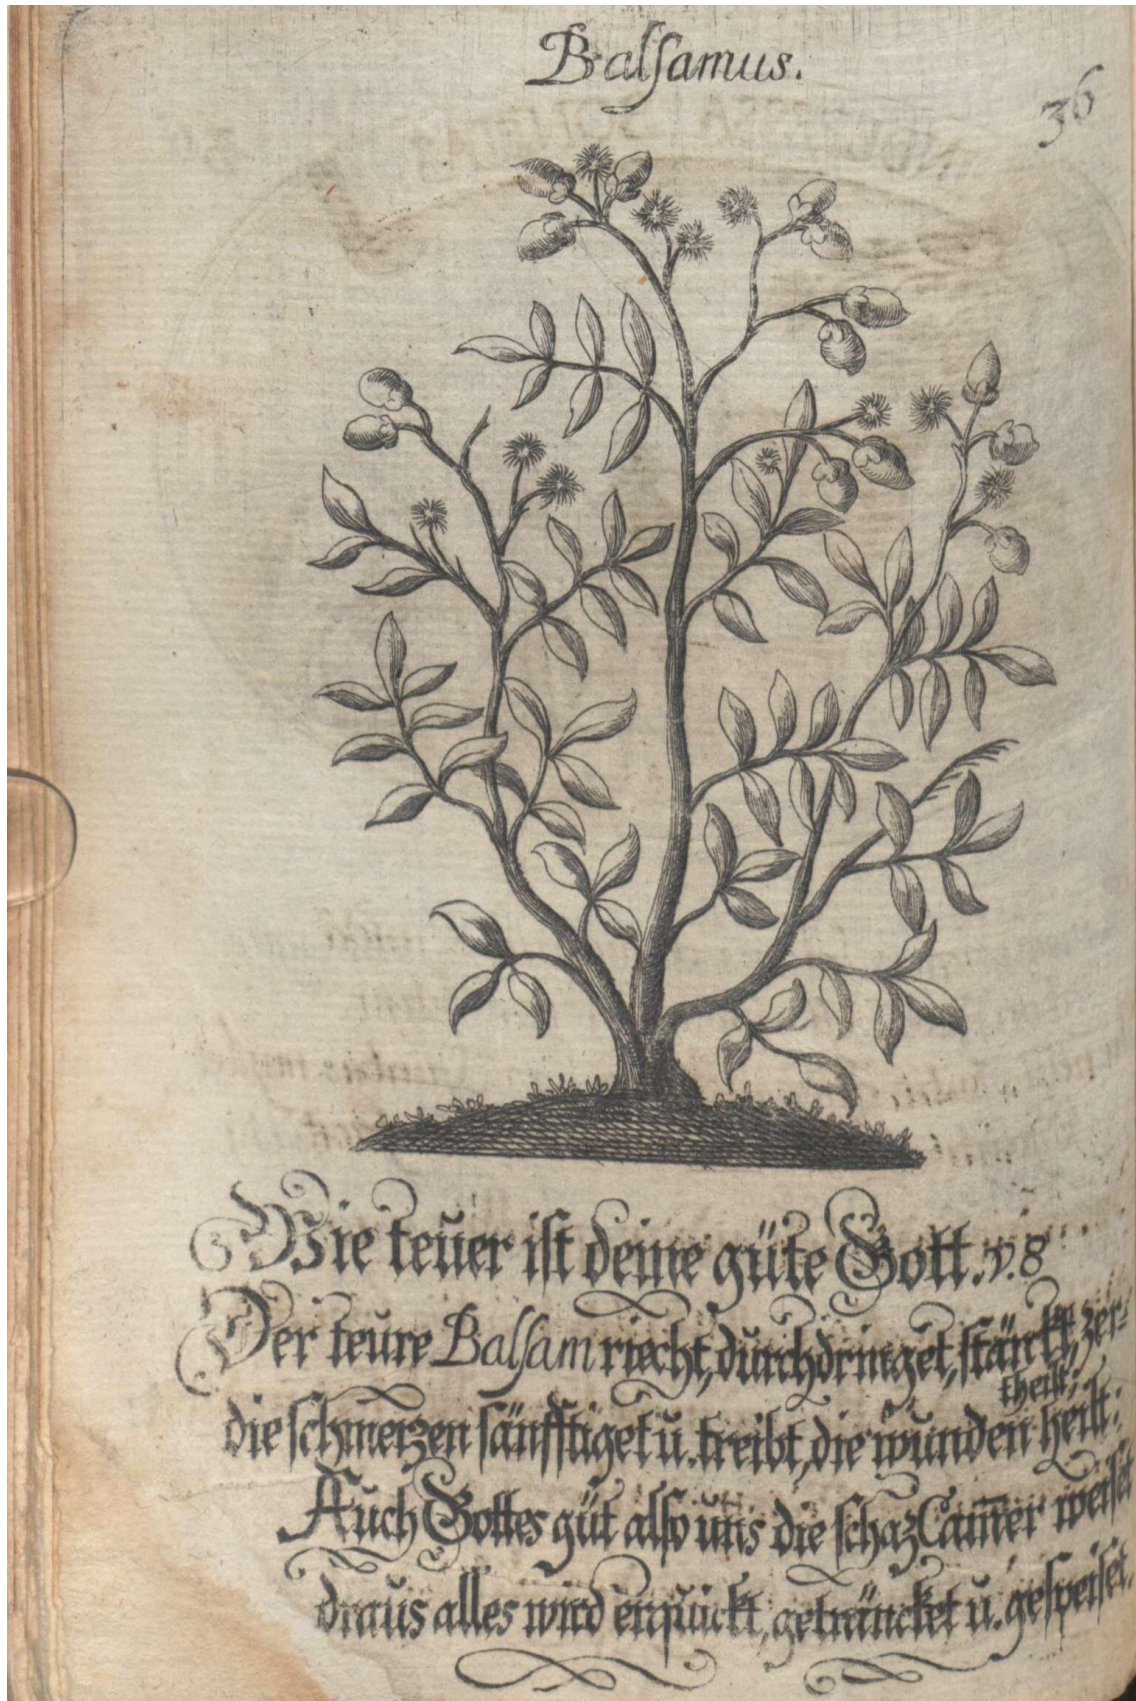 Balſamus.
36
Wie teüer iſt deine güte Gott. v. 8
Der teure Balſam riecht, durchdringet, stärkt, zer-
theilt;
die ſchmerzen ſänfftiget ü. treibt, die wünden heilt:
Auch Gottes güt alſo üns die ſchazCam̄er weiſet
draüs alles wird erquickt, geträncket ü. geſpeiſet.